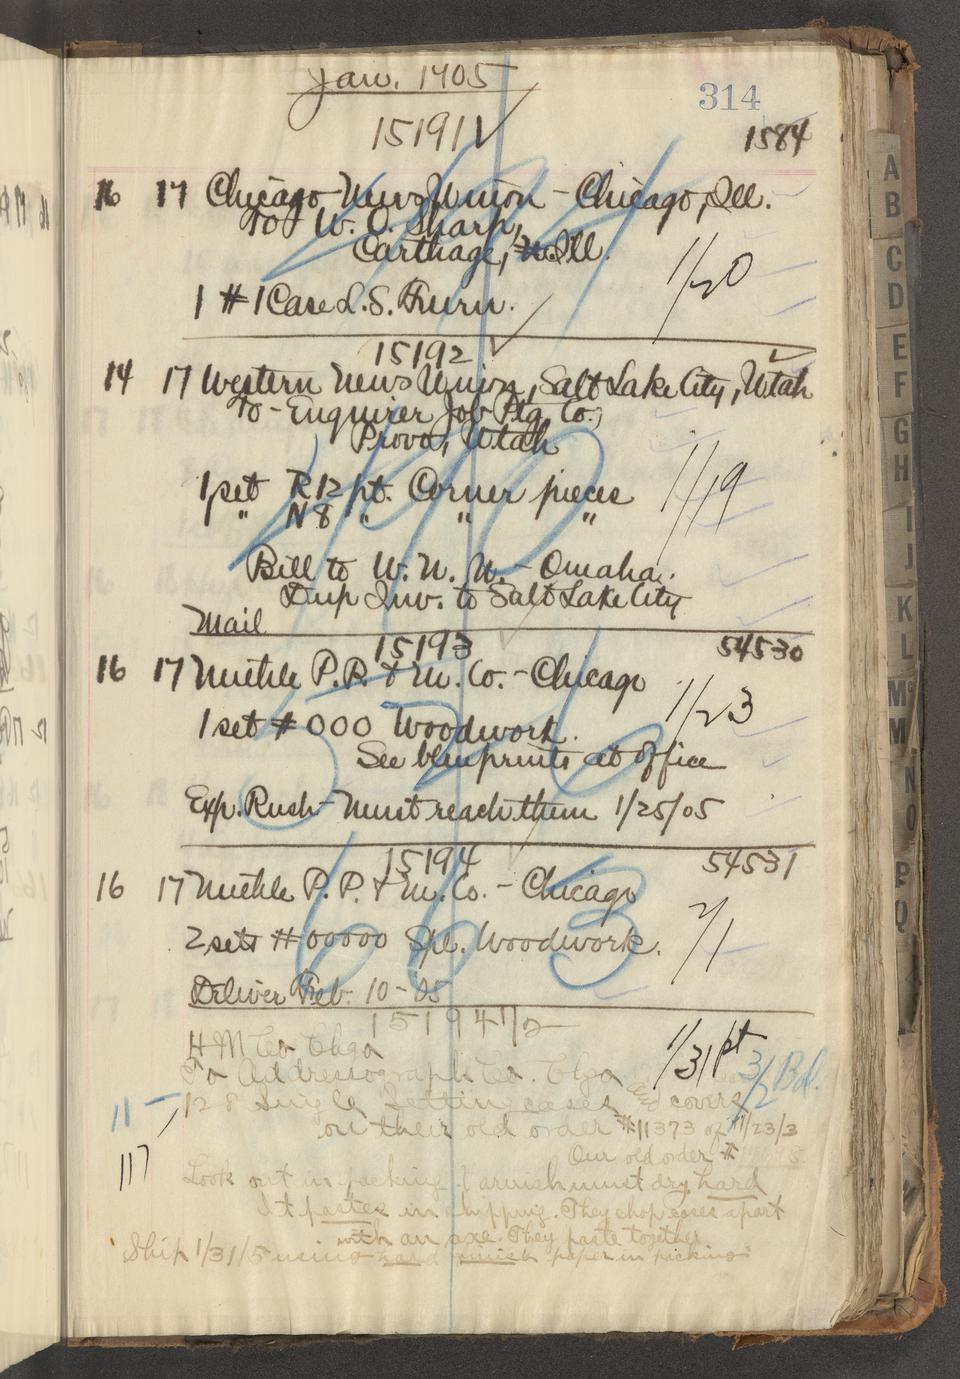 Jan. 1905
314
15191
1584
16 17 Chicago News Union - Chicago, Ill.
To W. O. Sharp,
Carthage, Ill.
1/20
1 #1 Case L. S. Furn.
15192
14 17 Western News Union, Salt Lake City, Utah
To - Enquirer Job Ptg. Co.,
Provo, Utah
1 set R 12 pt. Corner pieces
" N 8 " " "
1/19
Bill to W. N. U. - Omaha.
Dup Inv. to Salt Lake City
Mail
15193
54530
16 17 Miehle P. P. & M. Co. - Chicago
1/23
1 set #000 Woodwork.
See blueprints at office
Exp. Rush - Must reach them 1/25/05
15194
54531
16 17 Miehle P. P. & M. Co. - Chicago
2/1
2 sets #00000 Spl. Woodwork.
663
Deliver Feb. 10 - 05
15194 1/2
H M Co Chgo
To Addressograph Co. Chgo
1/31 pt 3/2 Bal.
11 - 128 Single Setting cases and covers
on their old order #11373 of 11/23/3
117
Our old order #
Look out in packing. Varnish must dry hard
It pastes in shipping. They chop cases apart
with an axe. They paste together
Ship 1/31/5 using hard finish paper in packing
A
B
C
D
E
F
G
H
I
J
K
L
M
M
N
O
P
Q